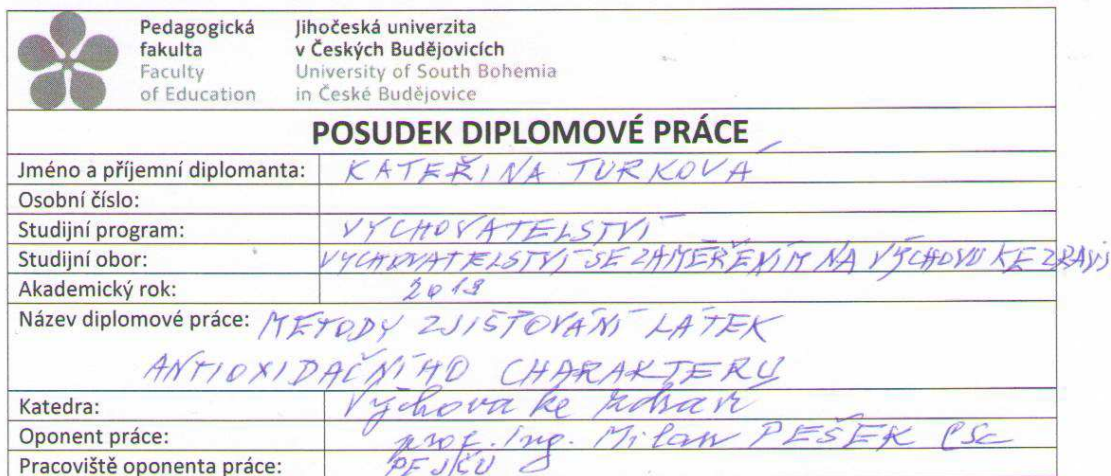 Pedagogická Jihočeská univerzita
fakulta v Českých Budějovicích
Faculty University of South Bohemia
of Education in České Budějovice
POSUDEK DIPLOMOVÉ PRÁCE
Jméno a příjemní diplomanta: KATEŘINA TURKOVÁ
Osobní číslo:
Studijní program: VYCHOVATELSTVÍ
Studijní obor: VYCHOVATELSTVÍ SE ZAMĚŘENÍM NA VÝCHOVU KE ZDRAVÍ
Akademický rok: 2019
Název diplomové práce: METODY ZJIŠŤOVÁNÍ LÁTEK
ANTIOXIDAČNÍHO CHARAKTERU
Katedra: Výchova ke zdraví
Oponent práce: prof. Ing. Milan PEŠEK CSc
Pracoviště oponenta práce: PF JČU